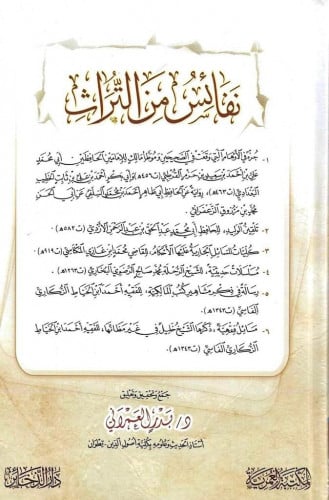 نفائس من التراث
١- جزء في الأوهام التي وقعت في الصحيحين وموطأ مالك للإمامين الحافظين أبي محمد
علي بن أحمد بن سعيد بن حزم القرطبي (ت٤٥٦هـ) وأبي بكر أحمد بن علي بن ثابت الخطيب
البغدادي (ت٤٦٣هـ)، رواية عن الحافظ أبي طاهر أحمد بن محمد السلفي عن أبي الحسن
محمد بن مرزوق الزعفراني.
٢- تلقين الوليد، للحافظ أبي محمد عبد الحق بن عبد الرحمن الأزدي (ت٥٨٢هـ).
٣- كليات المسائل الجارية عليها الأحكام، للقاضي محمد بن غازي المكناسي (ت٩١٩هـ).
٤- مسلسلات حديثية، للشيخ الرحلة محمد صالح الرضوي البخاري (ت١٢٦٣هـ).
٥- رسالة في ذكر مشاهير كتب المالكية، للفقيه أحمد ابن الخياط الزكاري
الفاسي (ت١٣٤٣هـ).
٦- مسائل فقهية، ذكرها الشيخ خليل في غير مظانها، للفقيه أحمد ابن الخياط
الزكاري الفاسي (ت١٣٤٣هـ).
جمع وتحقيق وتعليق
د/ بدر العمراني
أستاذ الحديث وعلومه بكلية أصول الدين - تطوان
المكتبة العمرية
دار الذخائر